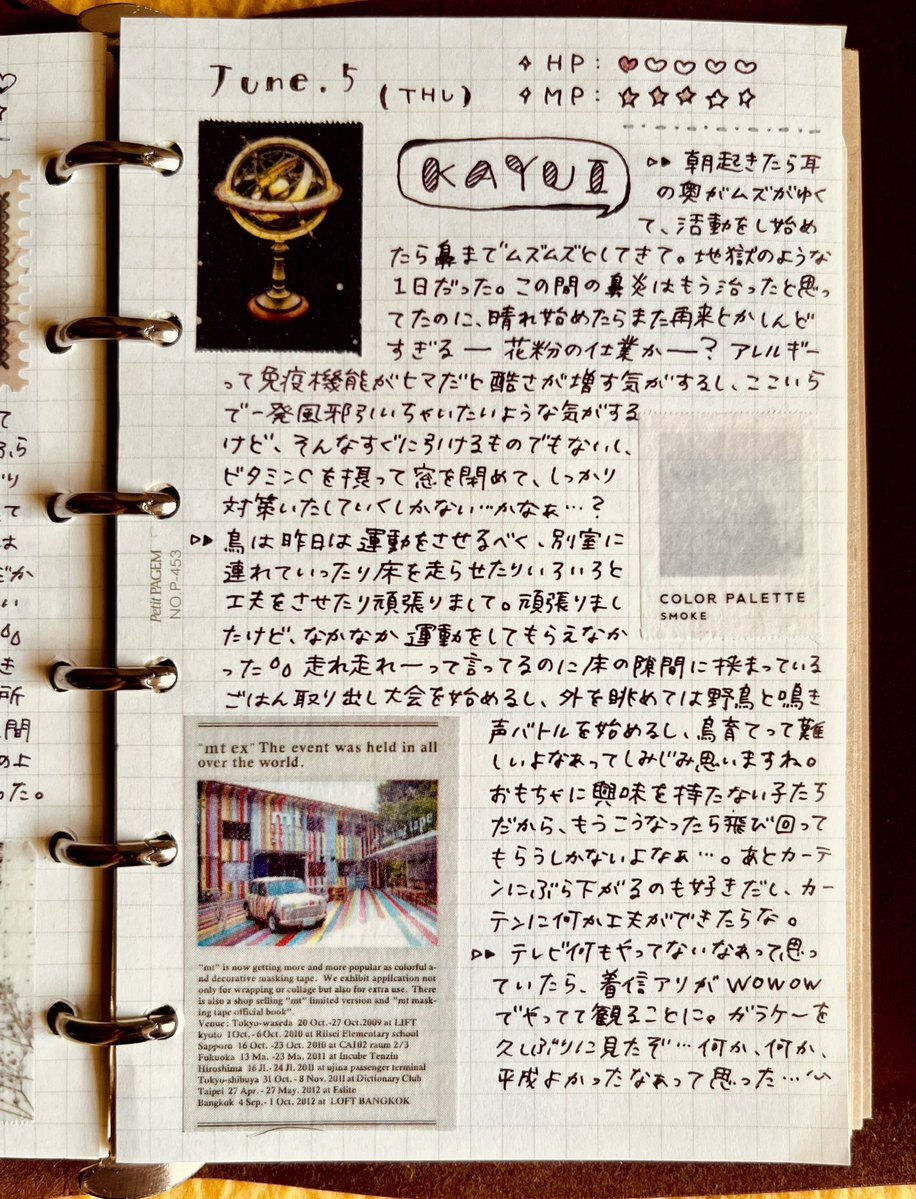 June.5 (THU)
✧ HP: ♥♡♡♡♡
✧ MP: ☆☆☆☆☆
KAYUI
▷▷ 朝起きたら耳
の奥がムズがゆく
て、活動をし始め
たら鼻までムズムズとしてきて。地獄のような
1日だった。この間の鼻炎はもう治ったと思っ
てたのに、晴れ始めたらまた再来とかしんど
すぎるー花粉の仕業かー?アレルギー
って免疫機能がヒマだと酷さが増す気がするし、ここいら
で一発風邪引いちゃいたいような気がする
けど、そんなすぐに引けるものでもないし、
ビタミンCを摂って窓を閉めて、しっかり
対策いたしていくしかない…かなぁ…?
▷▷ 鳥は昨日は運動をさせるべく、別室に
連れていったり床を走らせたりいろいろと
工夫をさせたり頑張りまして。頑張りまし
たけど、なかなか運動をしてもらえなか
った。走れ走れーって言ってるのに床の隙間に挟まっている
ごはん取り出し大会を始めるし、外を眺めては野鳥と鳴き
声バトルを始めるし、鳥育てって難
しいよなあってしみじみ思いますね。
おもちゃに興味を持たない子たち
だから、もうこうなったら飛び回って
もらうしかないよなぁ…。あとカーテ
ンにぶら下がるのも好きだし、カー
テンに何か工夫ができたらな。
▷▷ テレビ何もやってないなぁって思っ
ていたら、着信アリがWOWOW
でやってて観ることに。ガラケーを
久しぶりに見たぞ…何か、何か、
平成よかったなぁって思った…
COLOR PALETTE
SMOKE
Petit PAGEM
NO.P-453
"mt ex" The event was held in all
over the world.
mt
masking tape
"mt" is now getting more and more popular as colorful a-
nd decorative masking tape. We exhibit application not
only for wrapping or collage but also for extra use. There
is also a shop selling "mt" limited version and "mt mask-
ing tape official book".
Venue: Tokyo-waseda 20 Oct.-27 Oct.2009 at LIFT
kyoto 1Oct.-6Oct. 2010 at Riisei Elementary school
Sapporo 16 Oct.-23 Oct. 2010 at CAI02 raum 2/3
Fukuoka 13 Ma.-23 Ma. 2011 at Incube Tenzin
Hiroshima 16 Jl.-24 Jl. 2011 at ujina passenger terminal
Tokyo-shibuya 31 Oct.-8 Nov. 2011 at Dictionary Club
Taipei 27 Apr.-27 May. 2012 at Eslite
Bangkok 4 Sep.-1 Oct. 2012 at LOFT BANGKOK